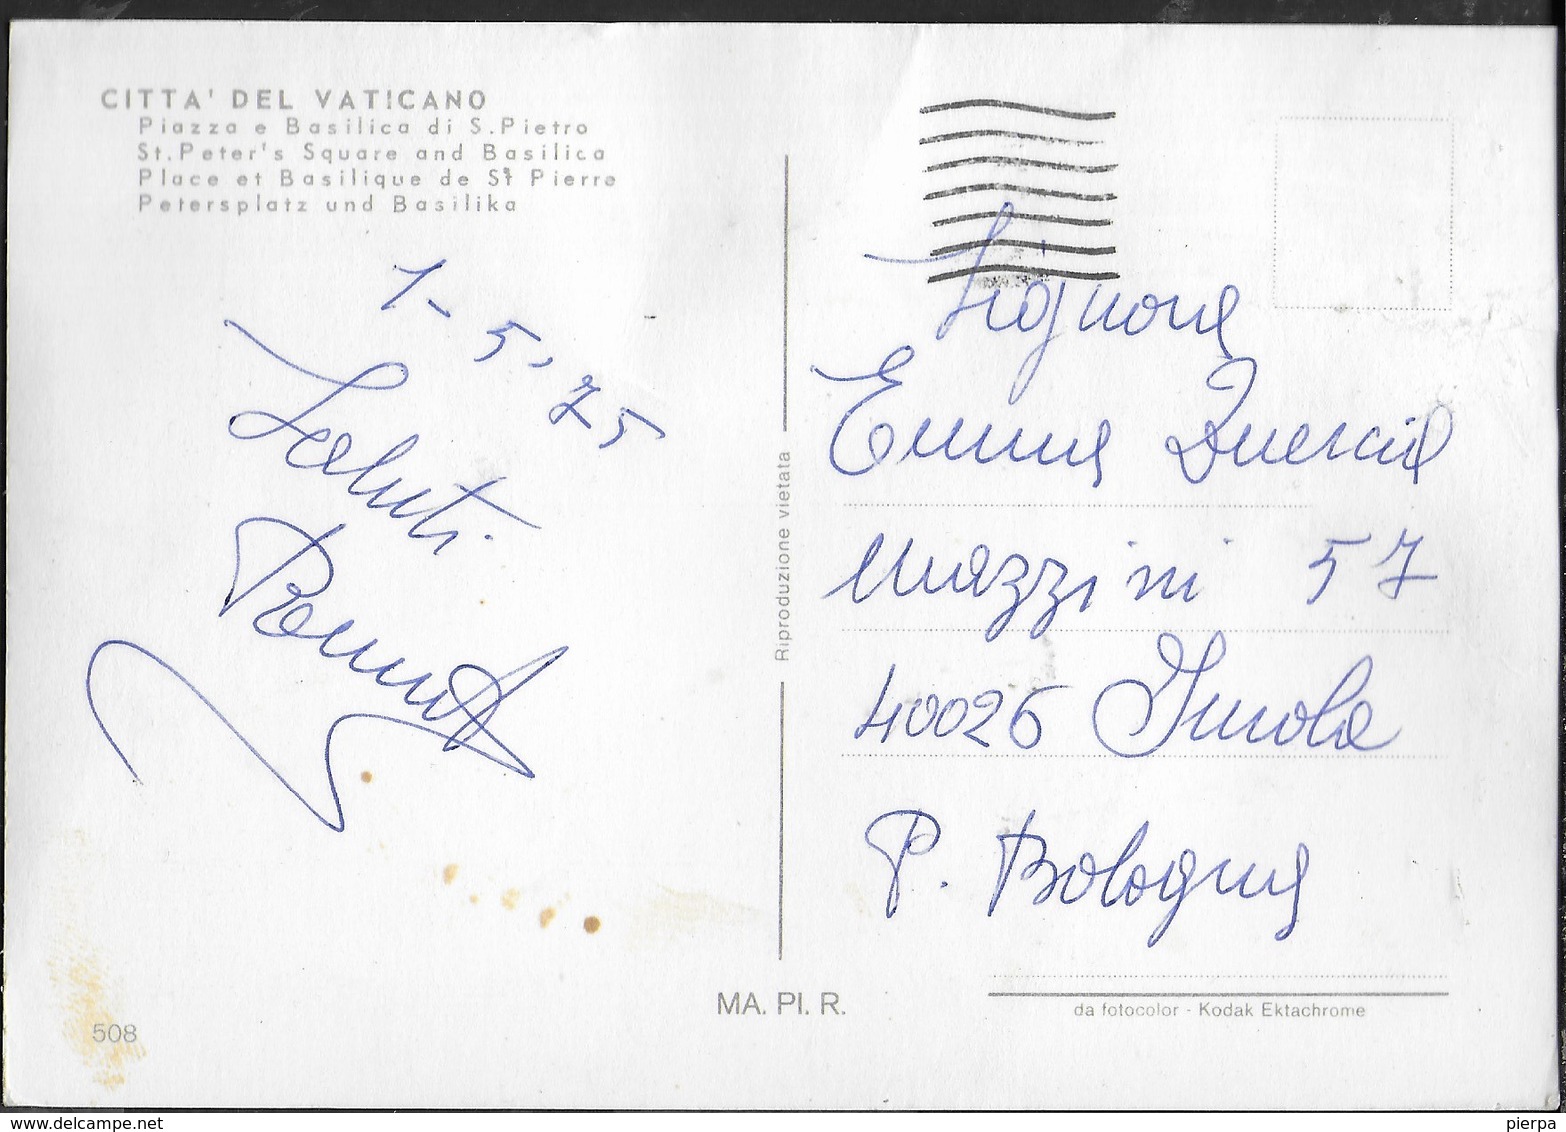 CITTA' DEL VATICANO
Piazza e Basilica di S.Pietro
St.Peter's Square and Basilica
Place et Basilique de St Pierre
Petersplatz und Basilika
1-5-75
Saluti
Riproduzione vietata
Signora
Emma
Mazzini 57
40026 Imola
P. Bologna
MA. PI. R.
da fotocolor - Kodak Ektachrome
508
www.delcampe.net
pierpa